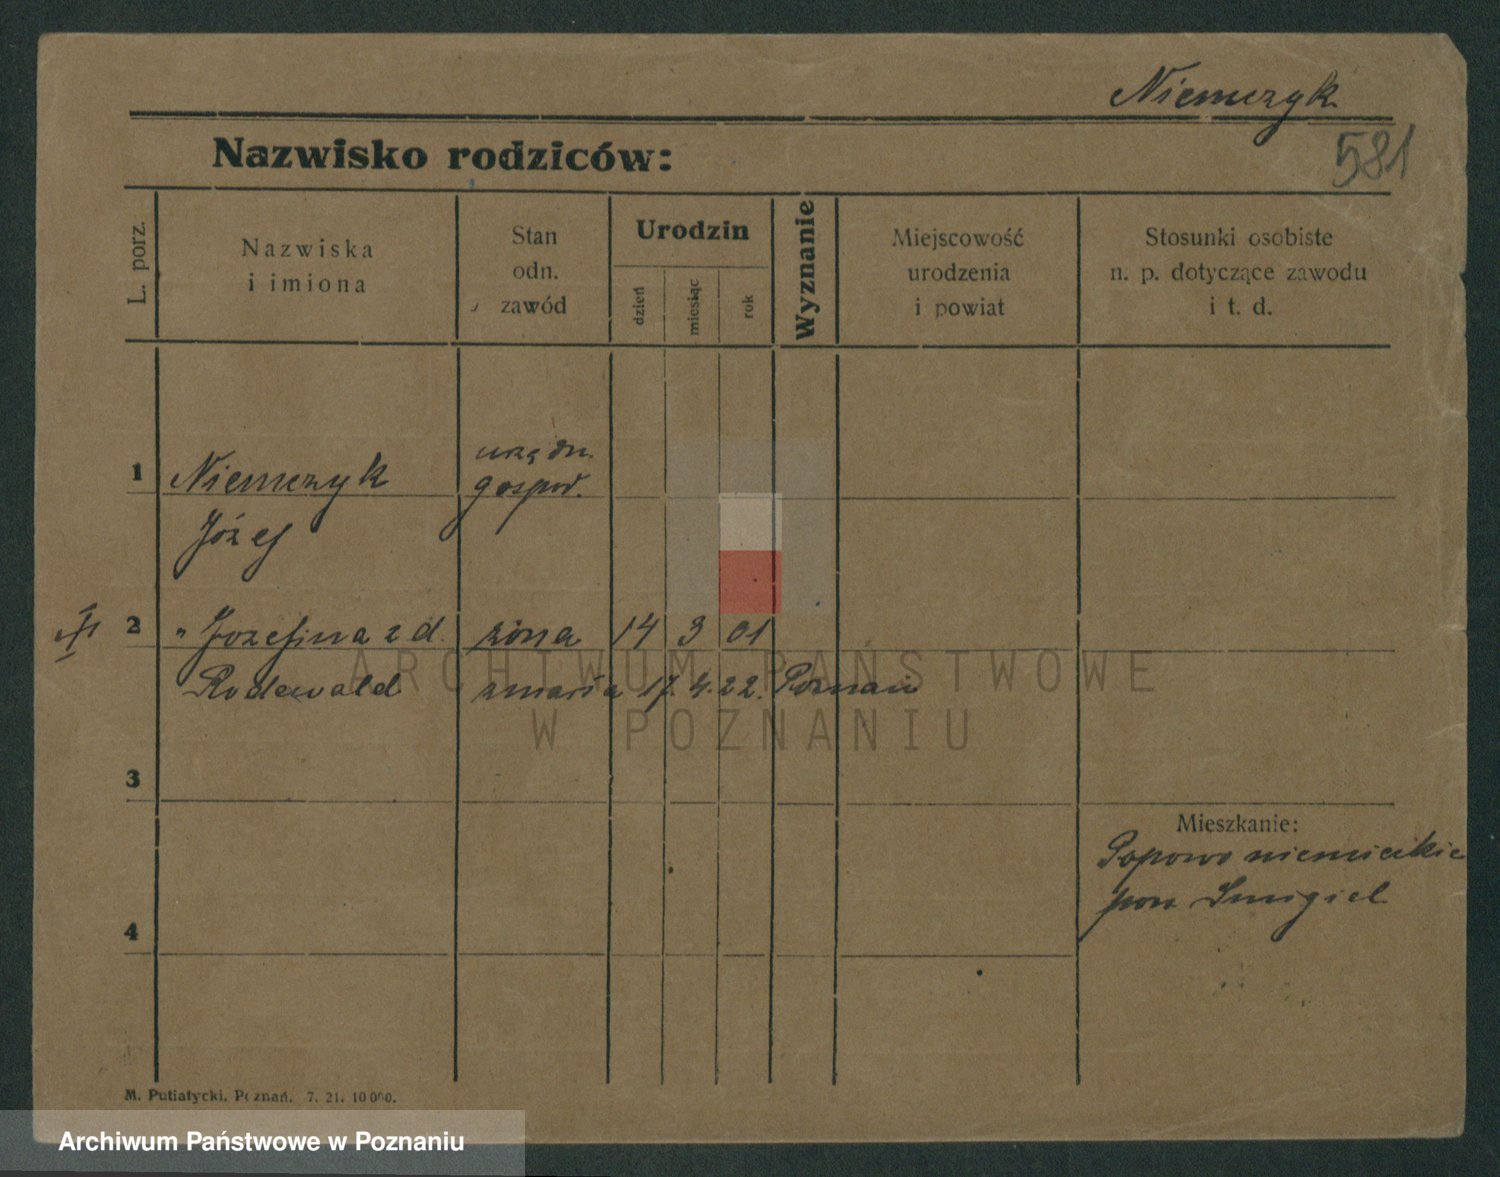 Niemczyk
581
Nazwisko rodziców:
L. porz.
Nazwiska
i imiona
Stan
odn.
zawód
Urodzin
dzień
miesiąc
rok
Wyznanie
Miejscowość
urodzenia
i powiat
Stosunki osobiste
n. p. dotyczące zawodu
i t. d.
1 Niemczyk urzędn.
gospod.
Józef
2 " Jozefina z d. żona 14 3 01
Rodewald zmarła 17. 4. 22. Poznań
3
Mieszkanie:
Popowo niemieckie
pow Smigiel
4
M. Putiatycki, Poznań. 7. 21. 10 000.
ARCHIWUM PAŃSTWOWE
W POZNANIU
Archiwum Państwowe w Poznaniu